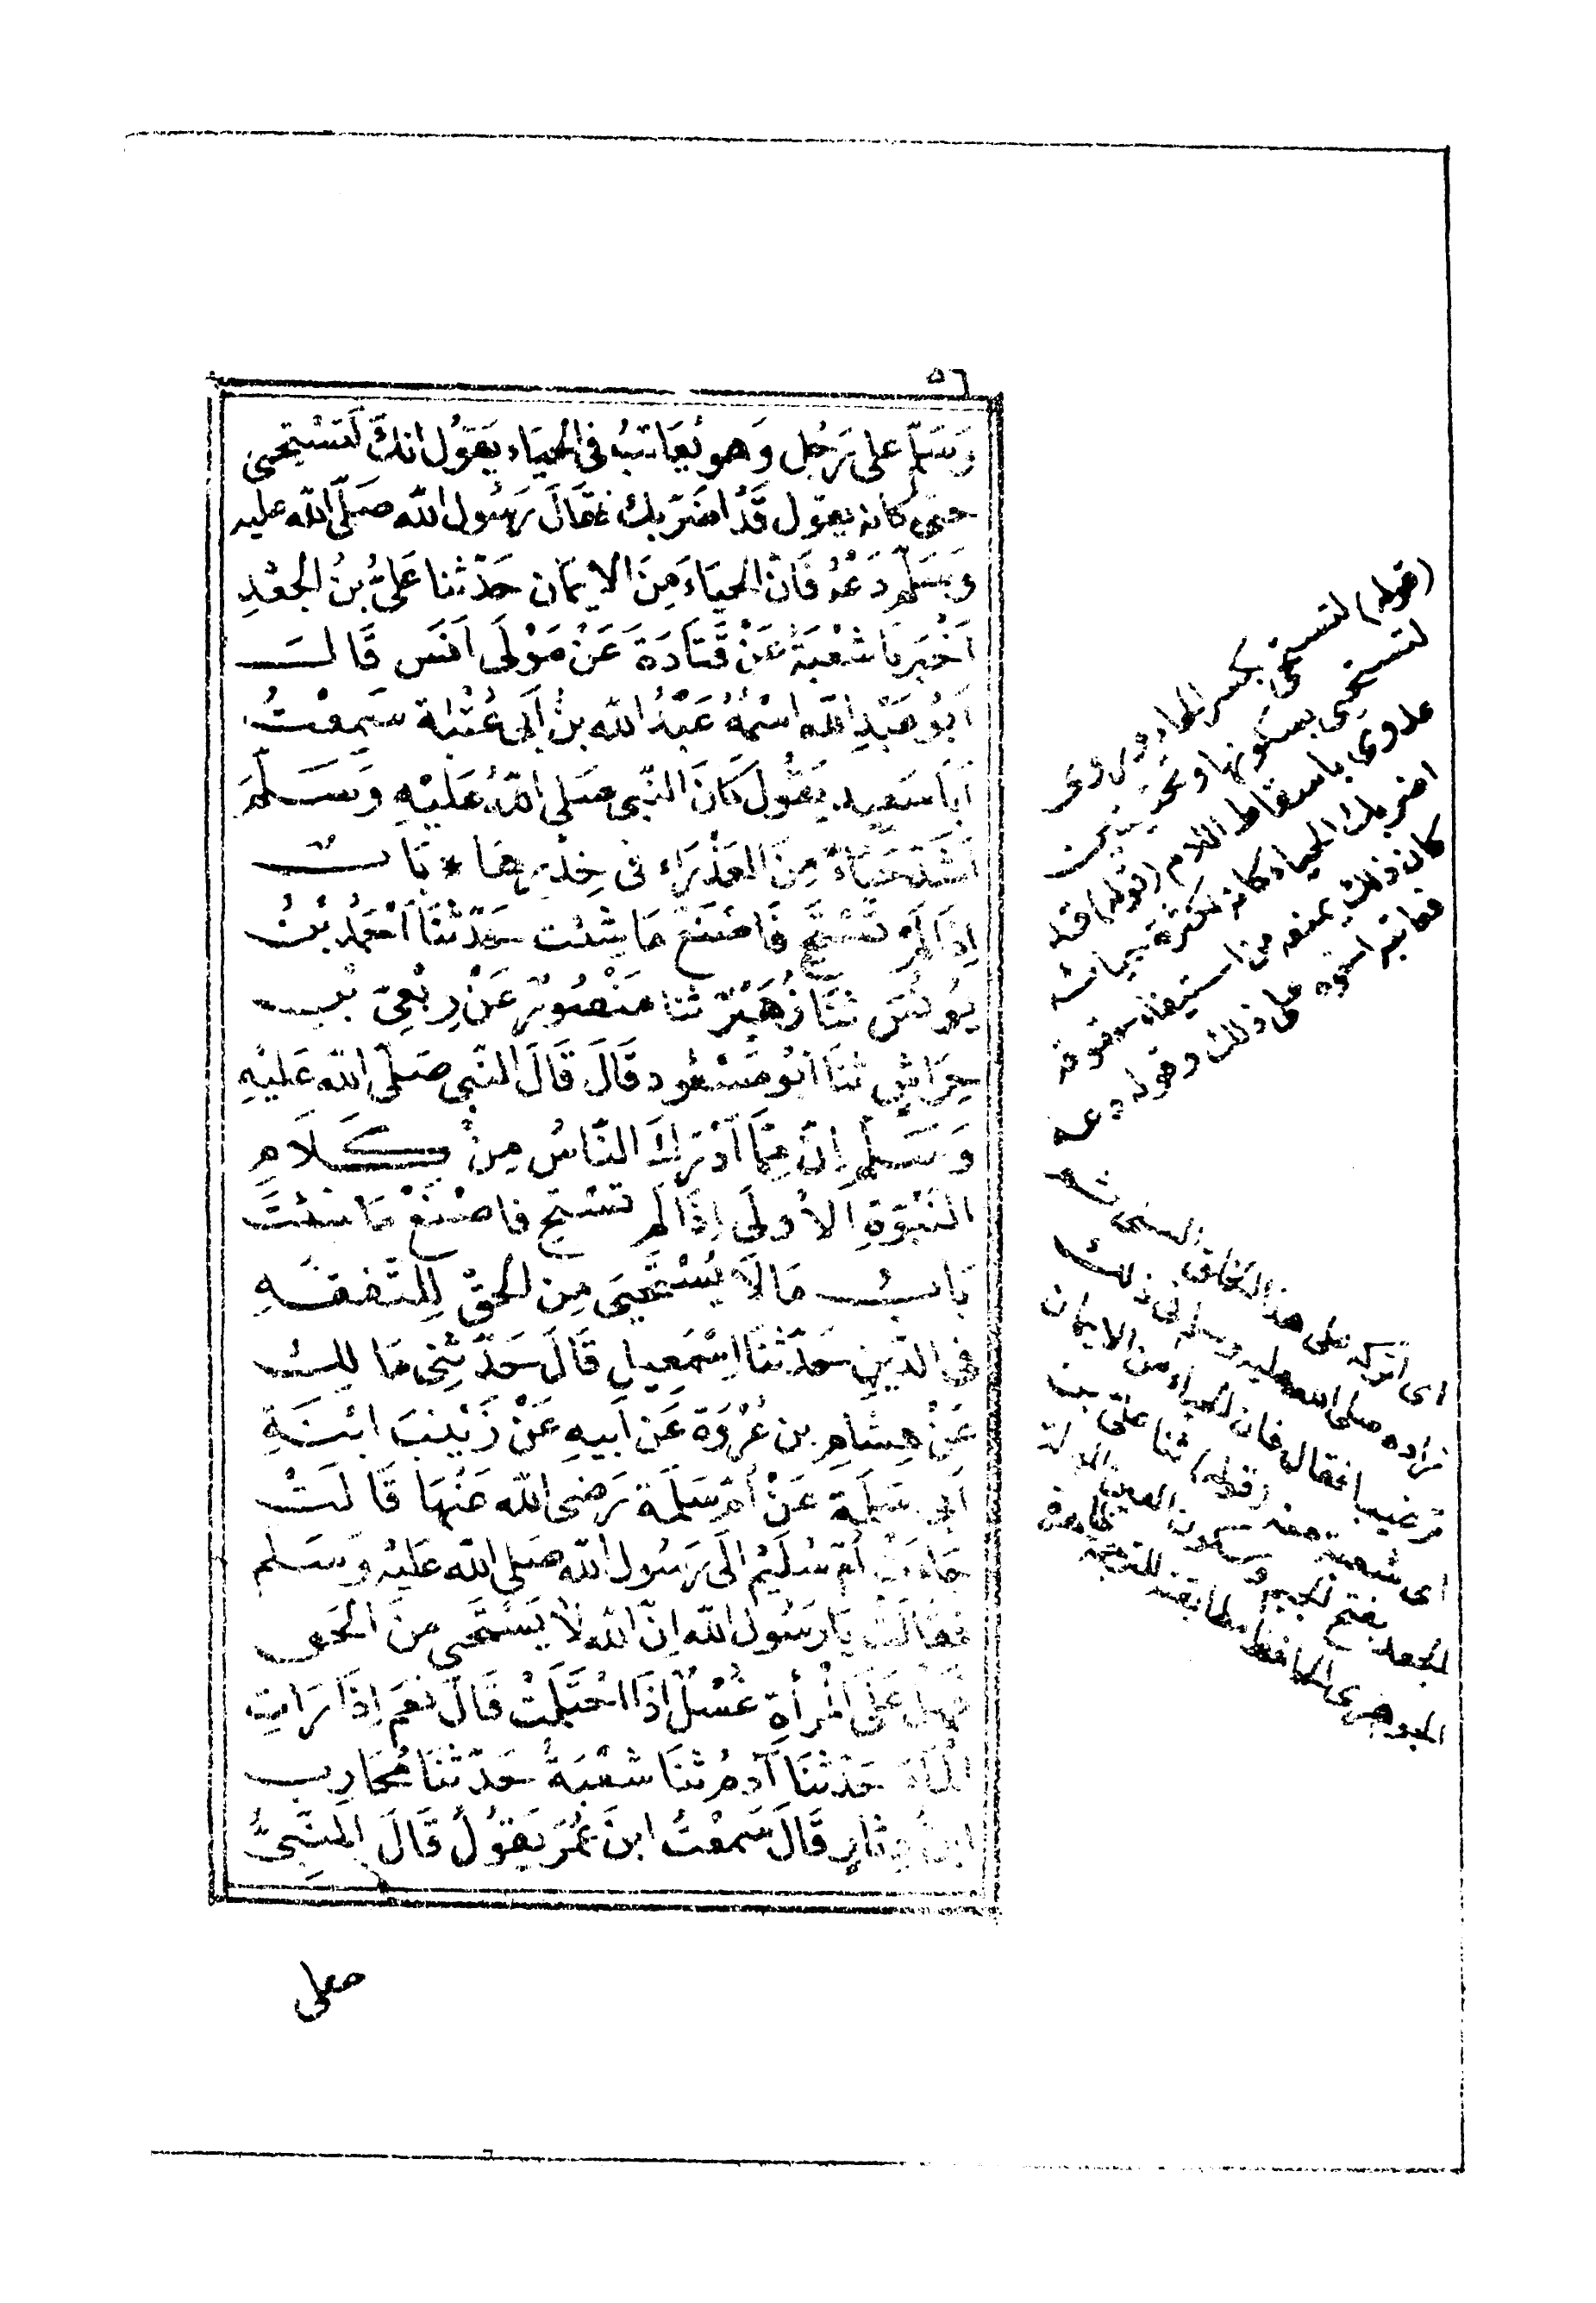 ٥٦
وَسَلَّم على رَجُل وَهو يُعَاتَبُ فى الحيَاء يَقوُل انك لَتَسْتَحيى
حتى كانه يقول قَدْ اضَرّ بك فقَالَ رَسُول الله صَلّى الله عليه
وَسَلّم دَعْهُ فَانّ الحيَاءَ مِنَ الايمَان حَدّثنا عَلىُّ بنُ الجعْدِ
اَخْبَرنَا شعْبَةُ عَنْ قَتَادَةَ عَنْ مَوْلَى اَنَس قَالَ
اَبُو عَبْدِ الله اسْمُهُ عَبْدُ الله بنُ أَبى عُتْبَة سَمِعْتُ
اَبَا سَعِيد يَقُول كَانَ النّبى صَلى اللهُ عَلَيْهِ وَسَلّمَ
اَشَدّ حَيَاءً مِنَ العَذْرَاء فى خِدْرِهَا * بَابٌ
اِذَا لَمْ تَسْتَحِ فَاصْنَعْ مَا شِئْت حَدّثنَا اَحْمَدُ بْنُ
يُونُسَ ثنَا زُهَيْرٌ ثنا مَنْصُورٌ عَنْ رِبْعِىّ بْنِ
حِرَاشٍ ثنَا اَبُو مَسْعُود قَالَ قَالَ النّبى صَلّى الله عَليْهِ
وَسَلّم اِنّ مِمَّا اَدْرَكَ النّاسُ مِنْ كَلَامِ
النّبُوّةِ الأُولَى اِذَا لَم تَسْتَحِ فاصْنَعْ مَا شِئْتَ
بَابُ مَا لَا يُسْتَحْيَى مِن الحَقّ لِلتَّفَقّهِ
فى الدّين حَدّثنَا اِسْمٰعيل قَالَ حَدّثنِى مَالِكُ
عَنْ هِشَامِ بن عُرْوَة عَن اَبيهِ عَنْ زَيْنَبَ ابْنَةِ
اَبى سَلَمَة عَنْ اُمّ سَلَمَة رَضِى الله عَنْهَا قَالَتْ
جَاءَتْ اُمّ سُلَيْم الَى رَسُول الله صَلى الله عَليْه وَسَلم
فقَالَتْ يَا رَسُول الله اِنّ الله لَا يَسْتَحى مِنَ الحَق
فَهَلْ عَلَى المْرأةِ غُسْلٌ اِذَا احْتَلَمَتْ قَالَ نعَم اِذَا رَاتِ
المَاءَ حَدّثنَا آدَمُ ثنَا شعْبَةُ حَدّثنَا مُحَارِب
ابنُ دِثَارٍ قَالَ سَمعْتُ ابنَ عُمَرَ يَقوُلُ قَالَ النّبىُّ
صلى
(قوله) لتستحى بكسر الحاء ويروى
لتستحيى بسكونها وتحتيتين
علاوى باسقاط اللام (قوله) قد
اضر بك الحياء كانه لكثرة حيائه
كان ذلك يمنعه من استيفاء حقوقه
فعاتبه اخوه على ذلك وقوله دعه
اى اتركه على هذا الخلق السنى ثم
زاده صلى الله عليه وسلم فى ذلك
ترغيبا فقال فان الحياء من الايمان
اى شعبة منه (قوله) ثنا على بن
الجعد بفتح الجيم وسكون العين المهملة
الجوهرى الحافظ مطابقته للترجمة ظاهرة